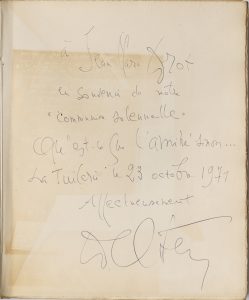 à Jean Marie Drot
en souvenir de notre
"communion solennelle"
Qu'est-ce que l'amitié sinon...
La Tuilerie le 23 octobre 1971
Affectueusement